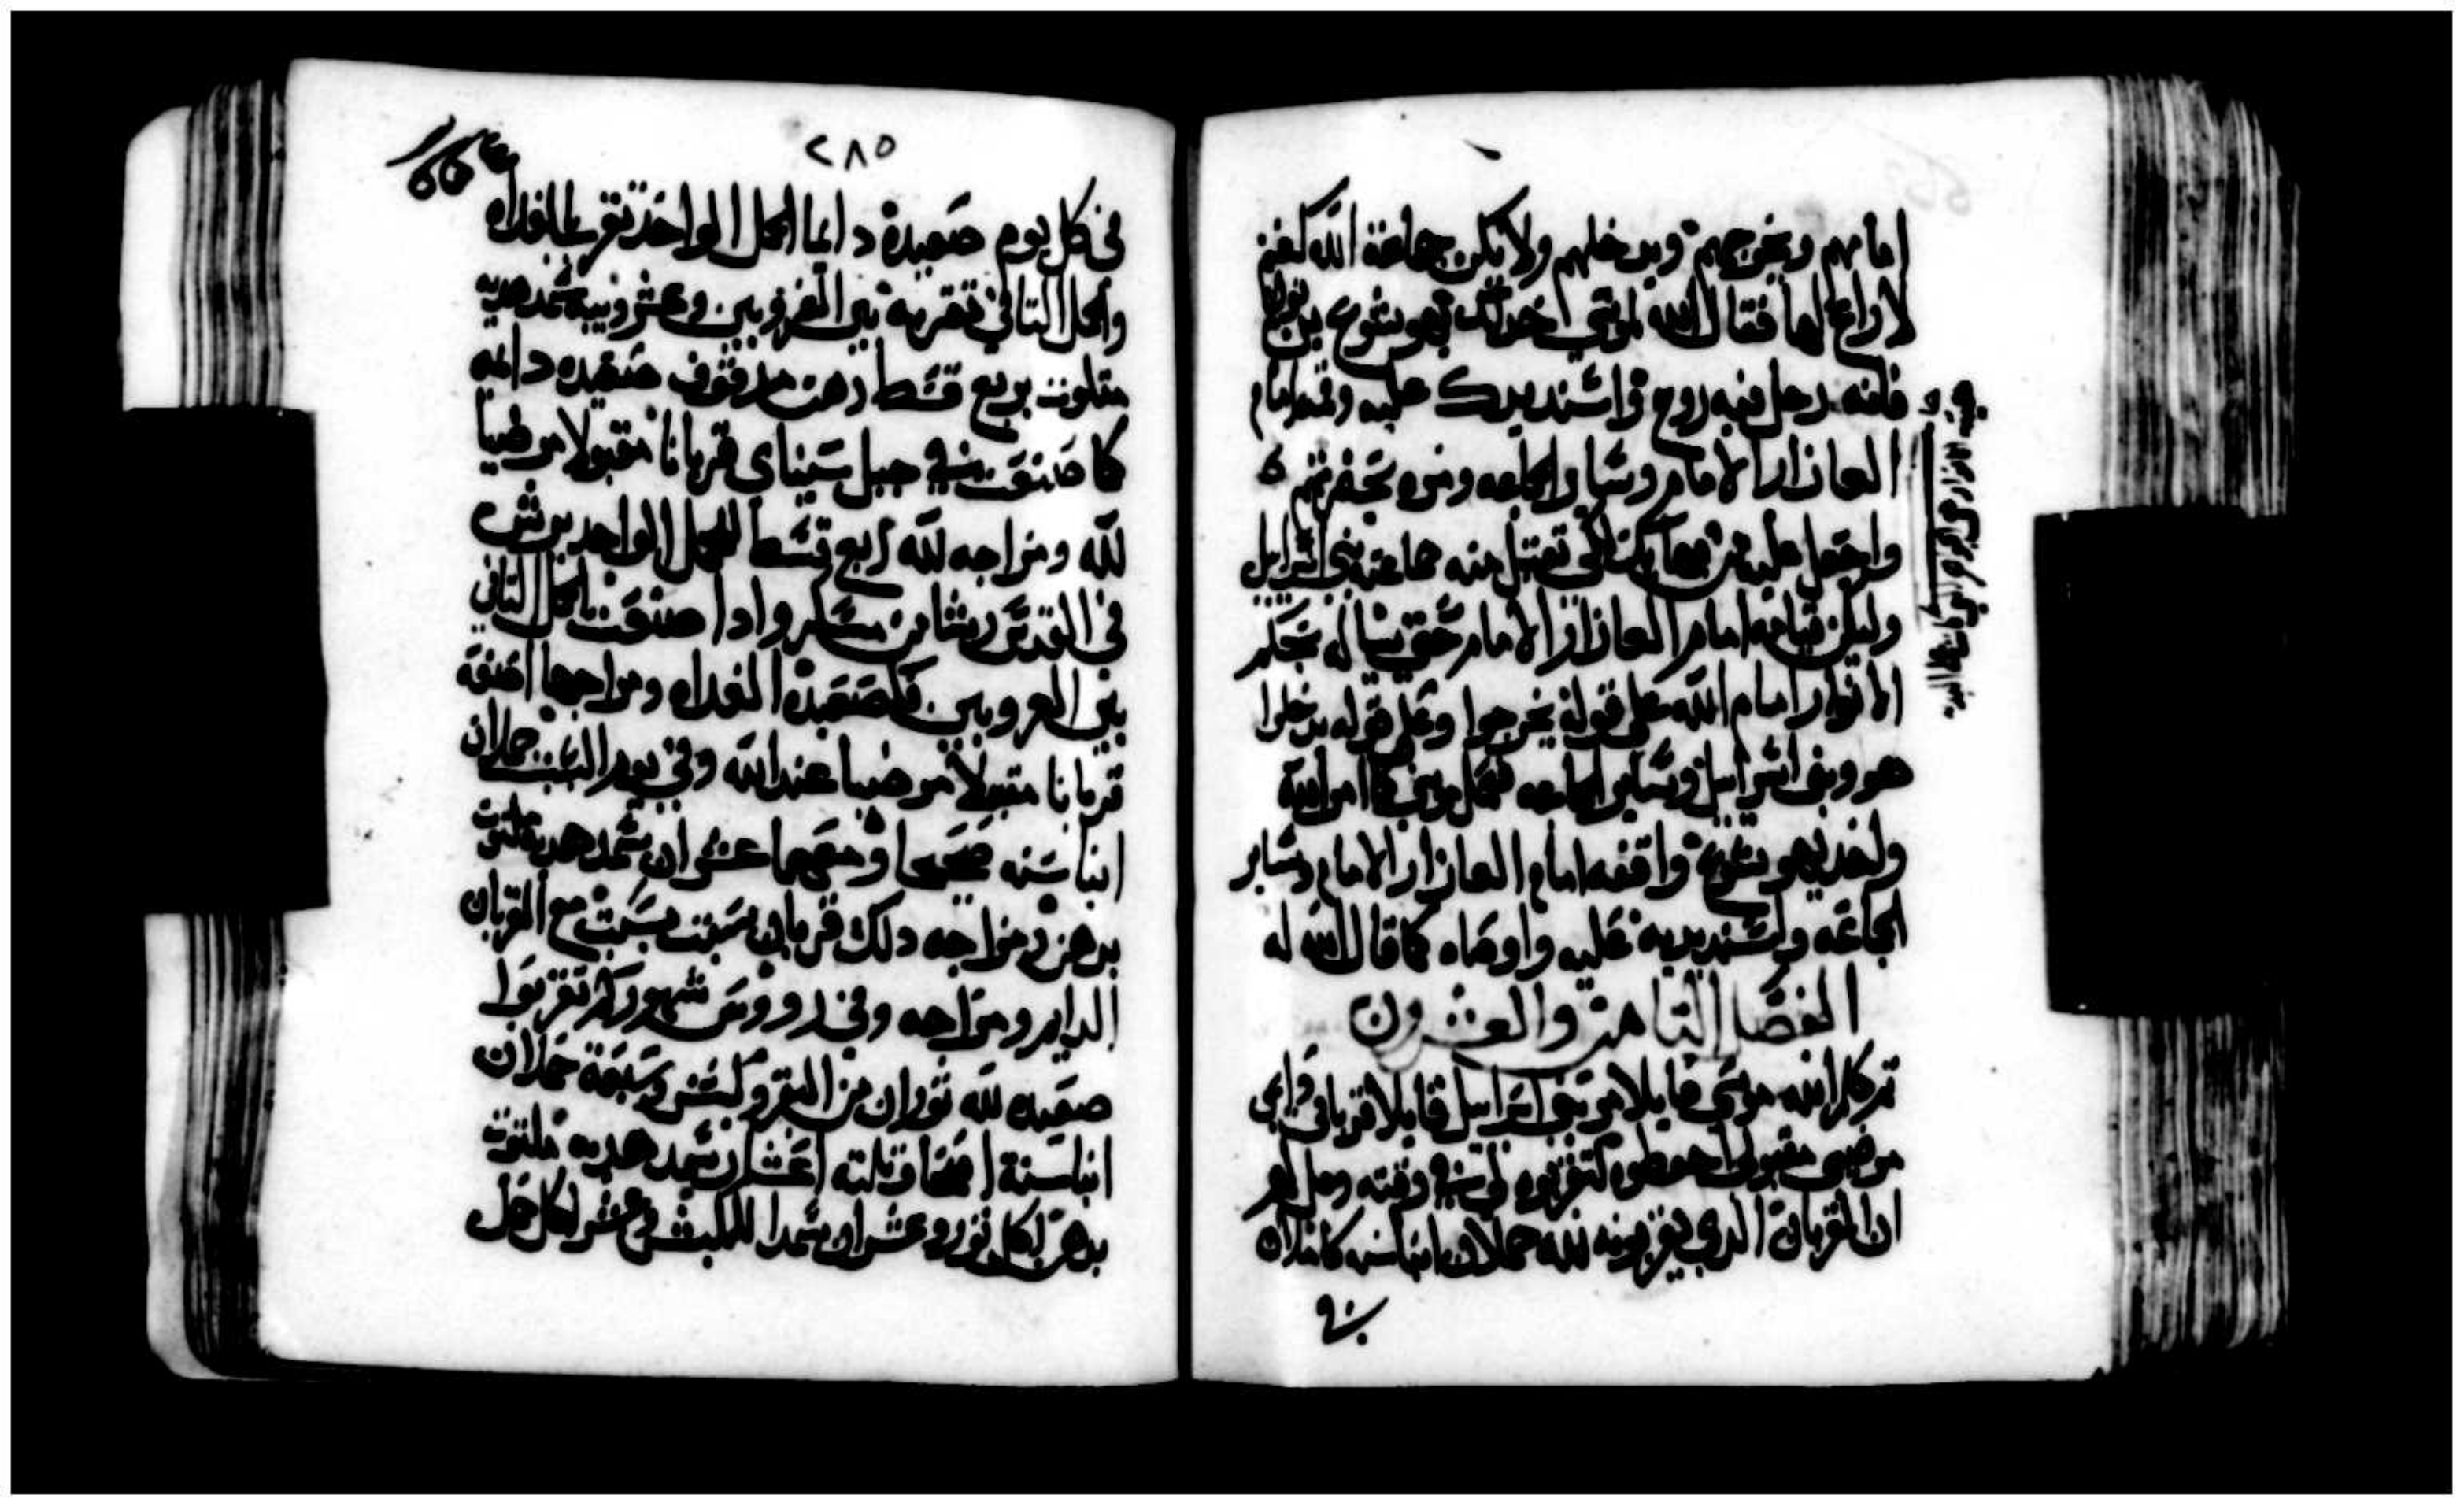 امامهم ويخرجهم ويدخلهم ولا يكن جماعة الله كغنم
لا راع لها فقال الله لموسى خد لك يهوشوع بن نون
فانه رجل فيه روح واسند يدك عليه وقفه امام
العازار الامام وساير الجماعه ومره بحضرتهم
واجعل عليه من بهايك لكي تقبل منه جماعة بني اسراييل
وليكن قيامه امام العازار الامام حتى يسال له بحكم
الانوار امام الله على قوله يخرجوا وعلى قوله يدخلوا
هو وبني اسراييل وساير الجماعه ففعل موسى كما امر الله
واخد يهوشوع واقفه امام العازار الامام وساير
الجماعه واسند يديه عليه واوصاه كما قال الله له
الفصل التامن والعشرون
تم كلم الله موسى قايلا مر بني اسراييل قايلا قرباني
مرضي مقبول احفظوه لتقربوه لي في وقته وقل لهم
ان القربان الدي تقربونه لله حملان ابنا سنه كاملان
في
٢٨٥
في كل يوم صعيدة دايما الحمل الواحد تقربه بالغداه
والحمل التاني تقربه بين الغروبين وعشر ويبة سمد هديه
ملتوت بربع قسط دهن مدقوق صعيده دايمه
كما صنعت في جبل سيناي قربانا مقبولا مرضيا
لله ومزاجه لله ربع قسط للحمل الواحد يرش
في القدس رشا من مسكر وادا صنعت الحمل التاني
بين الغروبين كصعيدة الغداه ومزاجها اصنعه
قربانا مقبولا مرضيا عند الله وفي يوم السبت حملان
ابنا سنه صحيحا ومعهما عشران سمد هديه ملتوت
بدهن ومزاجه دلك قربان سبت بسبت مع القربان
الدايم ومزاجه وفي رووس شهوركم تقربوا
صعيده لله توران من البقر وكبش وسبعة حملان
ابنا سنة اصحا وتلته اعشار سمد هديه ملتوت
بدهن لكل تور وعشران سمدا للكبش وعشر لكل حمل